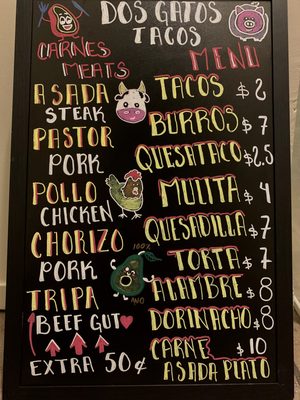 DOS GATOS
TACOS
CARNES
MEATS
MENU
ASADA
STEAK
PASTOR
PORK
POLLO
CHICKEN
CHORIZO
PORK
TRIPA
BEEF GUT
EXTRA 50¢
TACOS $2
BURROS $7
QUESATACO $2.5
MULITA $4
QUESADILLA $7
TORTA $7
ALAMBRE $8
DORINACHO $8
CARNE $10
ASADA PLATO
100%